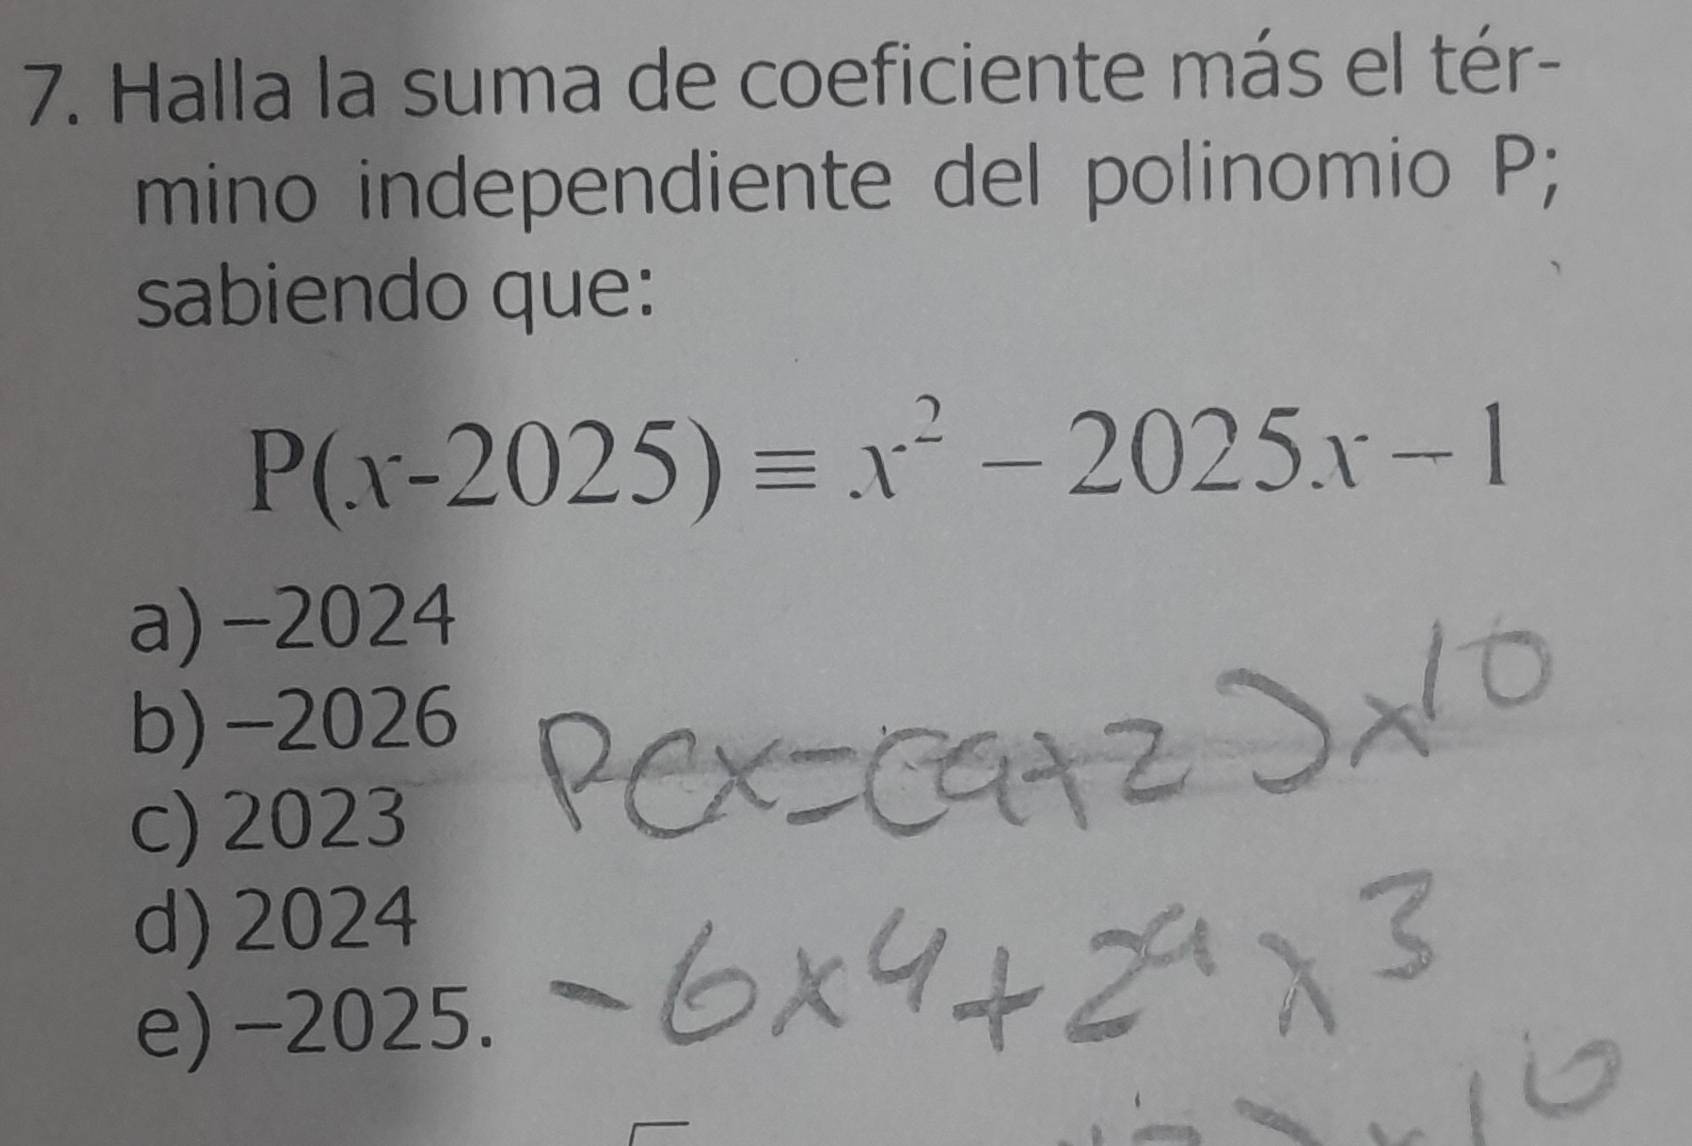 7. Halla la suma de coeficiente más el tér-
mino independiente del polinomio P;
sabiendo que:
P(x-2025) ≡ x² − 2025x − 1
a) −2024
b) −2026
c) 2023
d) 2024
e) −2025.
P(x=(a+2)x¹⁰
-6x⁴+2ᵃx³